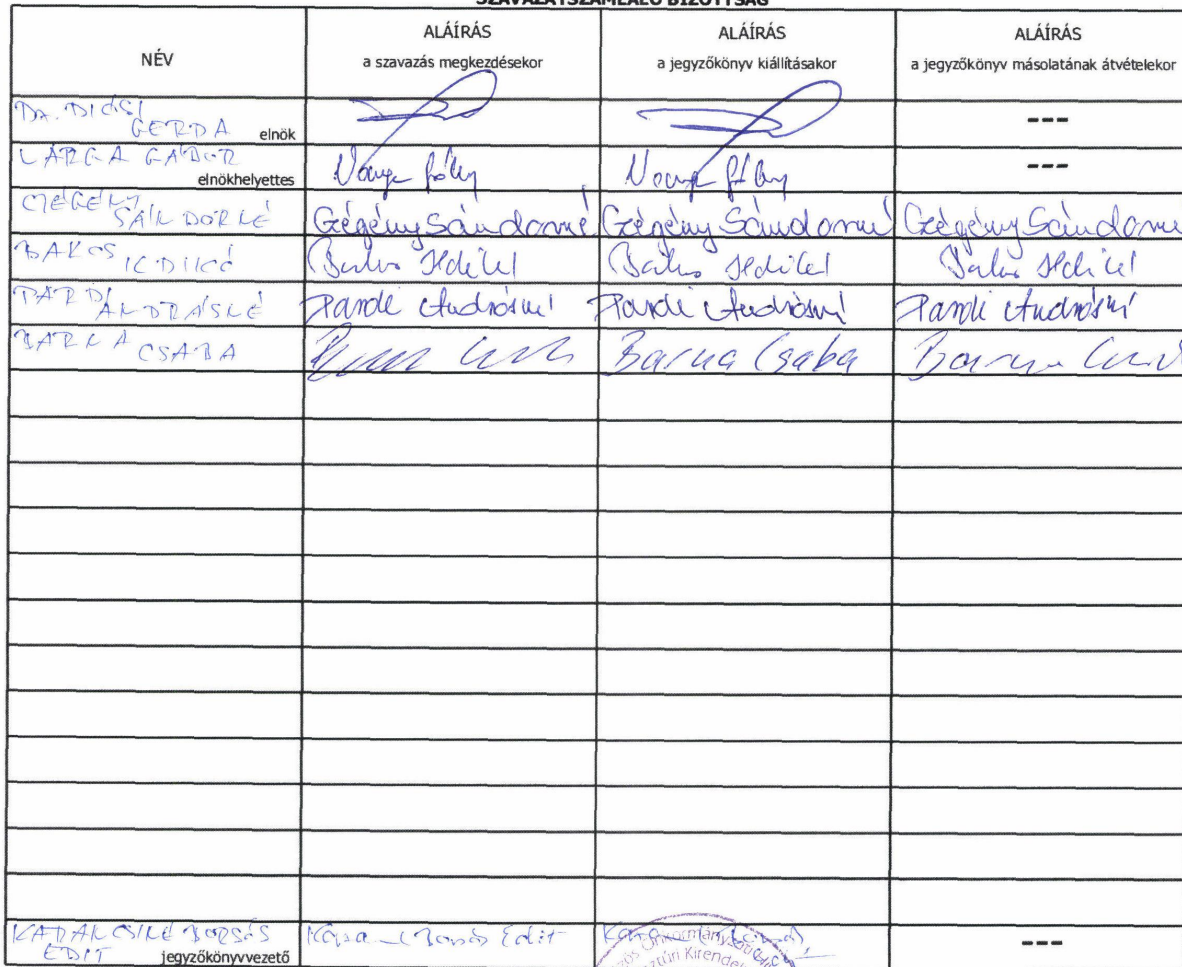 SZAVAZATSZÁMLÁLÓ BIZOTTSÁG
NÉV
ALÁÍRÁS
a szavazás megkezdésekor
ALÁÍRÁS
a jegyzőkönyv kiállításakor
ALÁÍRÁS
a jegyzőkönyv másolatának átvételekor
DR. DIÓSI
GERDA elnök
---
VARGA GÁBOR
elnökhelyettes
---
GÉGÉNY
SÁNDORNÉ
Gégény Sándorné Gégény Sándorné Gégény Sándorné
BAKOS ILDIKÓ
Bakos Ildikó Bakos Ildikó Bakos Ildikó
PARDI
ANDRÁSNÉ
Pardi Andrásné Pardi Andrásné Pardi Andrásné
BARNA CSABA
Barna Csaba
BORSÁS
EDIT jegyzőkönyvvezető
Edit
---